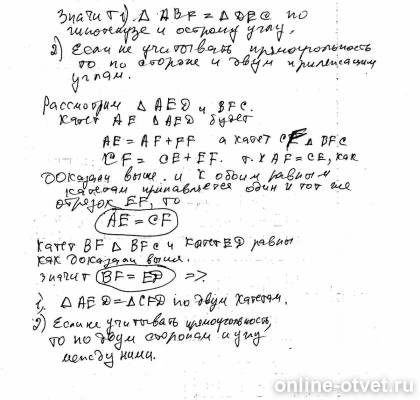 Значит 1) △ ABF = △ DEC по
гипотенузе и острому углу.
2) Если не учитывать прямоугольность
то по стороне и двум прилежащим
углам.
Рассмотрим △ AED и BFC.
Катет AE △ AED будет
AE = AF + FF а катет CF △ BFC
CF = CE + EF. т.к AF = CE, как
доказали выше. и к обоим равным
катетам прибавляется один и тот же
отрезок EF, то
AE = CF
Катет BF △ BFC и катет ED равны
как доказали выше.
значит BF = ED =>.
1) △ AED = △ CFD по двум катетам.
2) Если не учитывать прямоугольность,
то по двум сторонам и углу
между ними.
online-otvet.ru